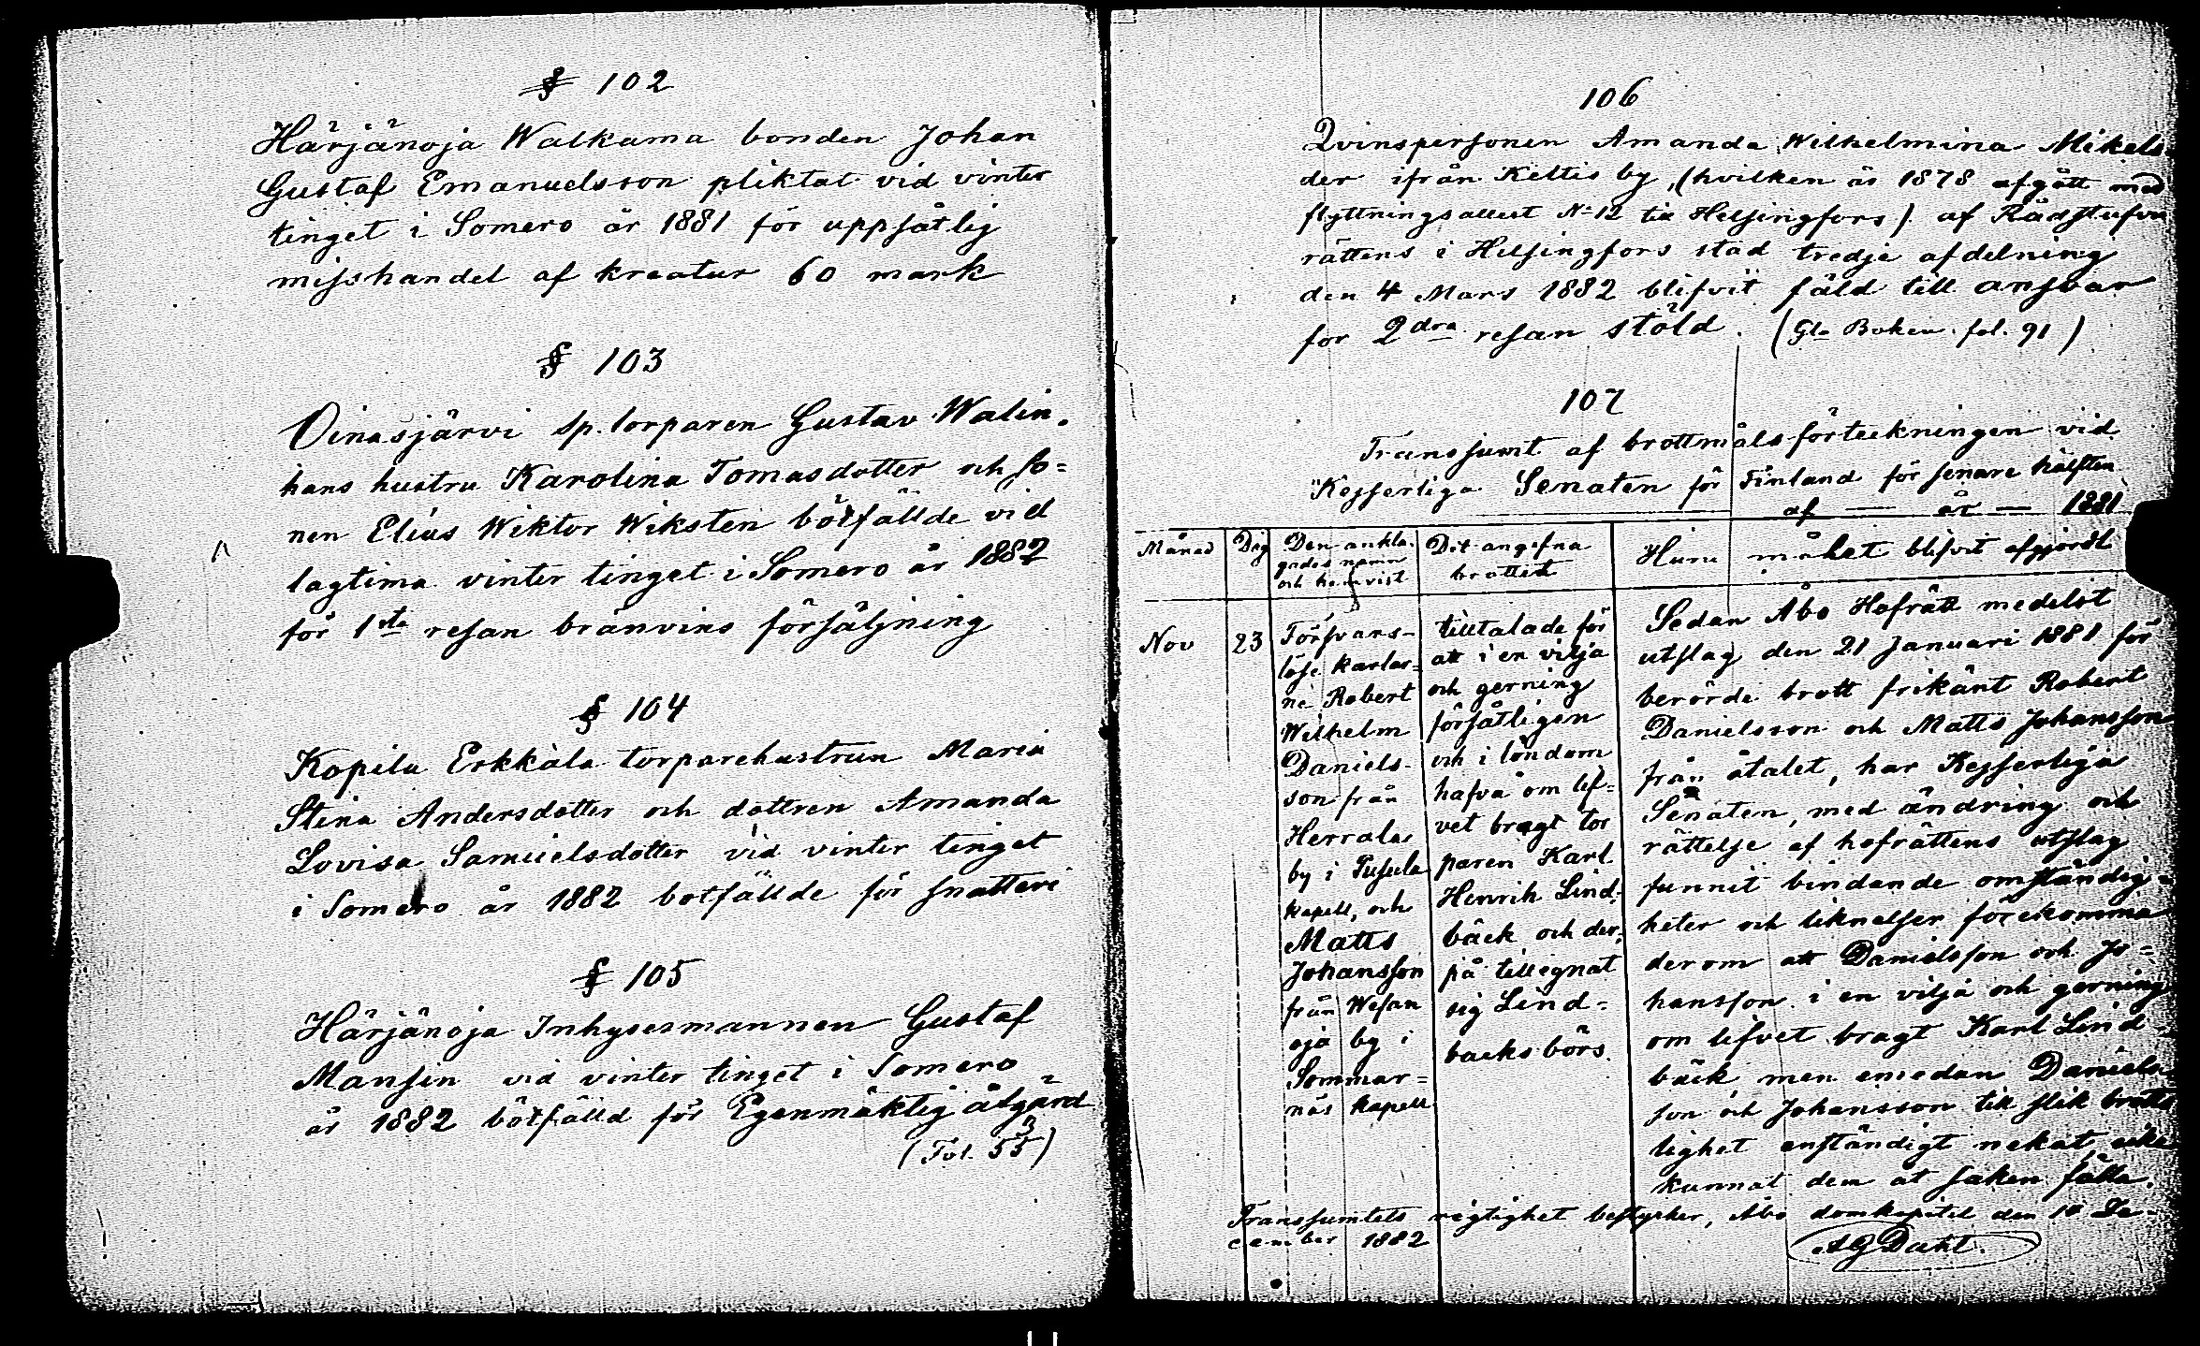 § 102
Härjänoja Walkama bonden Johan
Gustaf Emanuelsson pliktat vid vinter
tinget i Somero år 1881 för uppsåtlig
misshandel af kreatur 60 mark
§ 103
Oinasjärvi sp. torparen Gustav Walin,
hans hustru Karolina Tomasdotter och so=
nen Elias Wiktor Wiksten bötfällde vid
lagtima vinter tinget i Somero år 1882
för 1sta resan bränvins försäljning
§ 104
Kopila Erkkala torparehustrun Maria
Stina Andersdotter och dottren Amanda
Lovisa Samuelsdotter vid vinter tinget
i Somero år 1882 botfällde för snatteri
§ 105
Härjänoja Inhysesmannen Gustaf
Mansin vid vinter tinget i Somero
år 1882 bötfälld för Egenmäktig åtgärd
(Fol. 53)
106
Qvinspersonen Amanda Wilhelmina Mikels
der ifrån Keltis by, (hvilken år 1878 afgått med
flyttningsattest No 12 till Helsingfors) af Rådstufvu
rättens i Helsingfors stad tredje afdelning
den 4 Mars 1882 blifvit fäld till ansvar
för 2dra resan stöld. (Gla Boken fol. 91)
107
Transsumt af brottmålsförteckningen vid
Kejserliga Senaten för Finland för senare hälften
af — år — 1881
Månad | Dag | Den ankla-gades namn och hemvist | Det angifna brottet | Huru målet blifvit afgjordt
Nov 23
Försvars-
löse karlar-
ne Robert
Wilhelm
Daniels-
son från
Herrala
by i Pusula
kapell, och
Matts
Johansson
från Wesan
oja by i
Sommar=
näs kapell
tilltalade för
att i en vilja
och gerning
försåtligen
och i löndom
hafva om lif=
vet bragt tor
paren Karl
Henrik Lind-
bäck och der-
på tillegnat
sig Lind-
backs börs.
Sedan Åbo Hofrätt medelst
utslag den 21 Januari 1881 för
berörde brott frikänt Robert
Danielsson och Matts Johansson
från åtalet, har Kejserliga
Senaten, med ändring och
rättelse af hofrättens utslag
funnit bindande omständig-
heter och liknelser förekomma
derom att Danielsson och Jo=
hansson i en vilja och gerning
om lifvet bragt Karl Lind
bäck men emedan Daniels-
son och Johansson till slik brotts
lighet enständigt nekat, icke
kunnat dem åt saken fälla.
Transsumtets rigtighet bestyrker, Åbo domkapitel den 10 De-
cember 1882
AG Dahl.